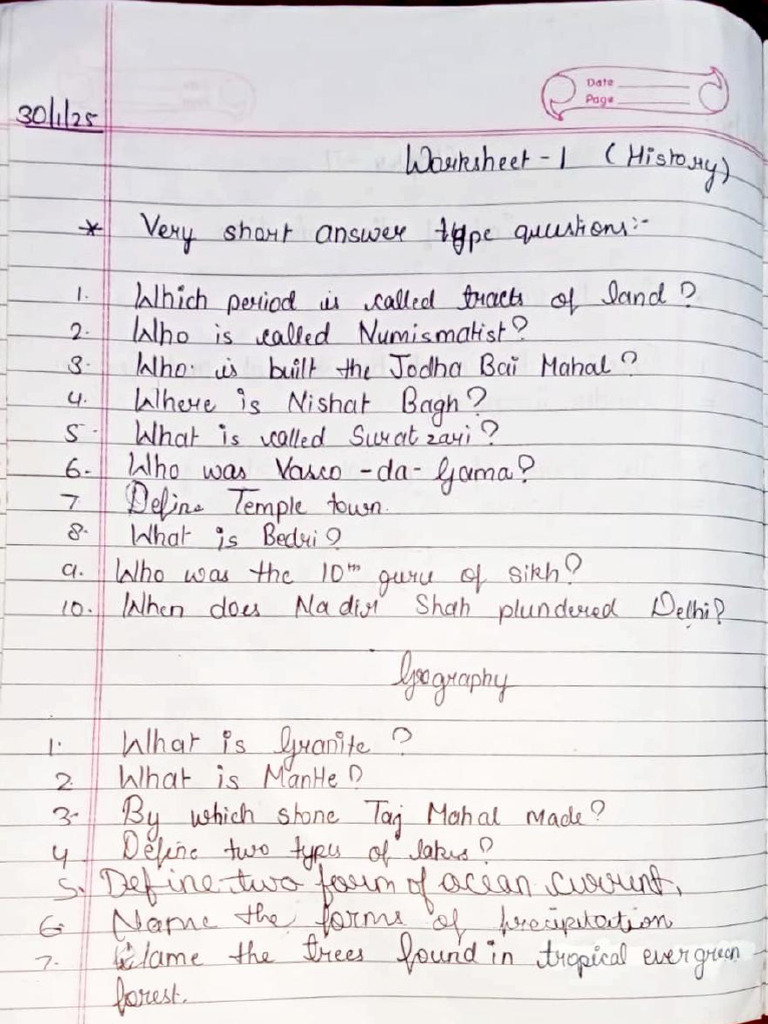 Date
Page
30/1/25
Worksheet - 1 (History)
* Very short answer type questions:-
1. Which period is called tracts of land?
2. Who is called Numismatist?
3. Who is built the Jodha Bai Mahal?
4. Where is Nishat Bagh?
5. What is called Surat zari?
6. Who was Vasco-da-Gama?
7 Define Temple town.
8. What is Bedri?
9. Who was the 10th guru of sikh?
10. When does Nadir Shah plundered Delhi?
Geography
1. What is Granite?
2 What is Mantle?
3. By which stone Taj Mahal made?
4 Define two types of lakes?
5. Define two form of ocean current.
6. Name the forms of precipitation
7. Name the trees found in tropical evergreen
forest.